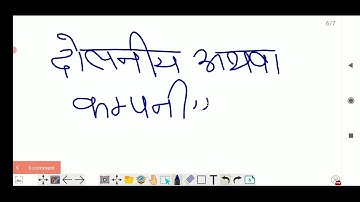 6/7
दोलनीय अथवा
कम्पनी,,
0 comment